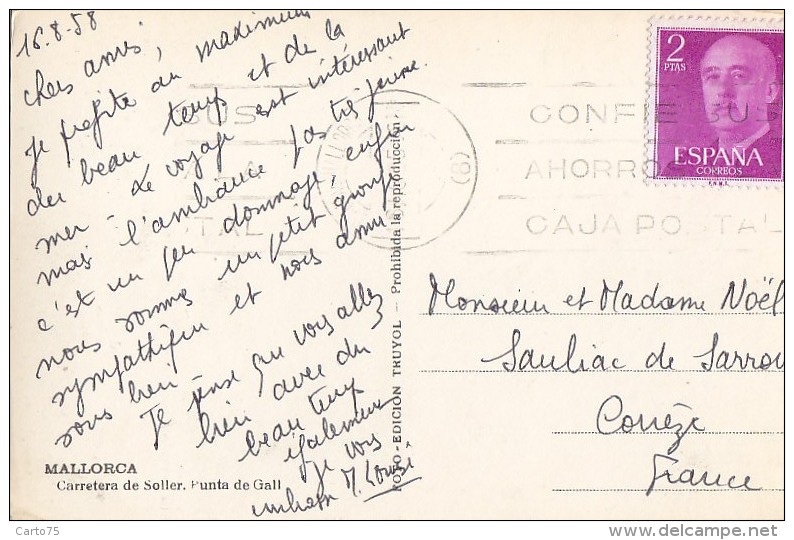 16-8-58
Chers amis,
Je profite au maximum
du beau temps et de la
mer - Le voyage est intéressant
mais l'ambiance pas très jeune.
c'est un peu dommage, enfin
nous sommes un petit groupe
sympathique et nous amu
sons bien -
Je pense que vous allez
bien avec du
beau temps
également
Je vous
embrasse M. Louise
MALLORCA
Carretera de Soller. Punta de Gall
FOTO - EDICION TRUYOL - Prohibida la reproducción
CONFIE SUS
AHORROS
CAJA POSTAL
(8)
2
PTAS
ESPAÑA
CORREOS
F.N.M.T.
Monsieur et Madame Noël
Sauliac de Sarrou
Corrèze
France
Carto75
www.delcampe.net